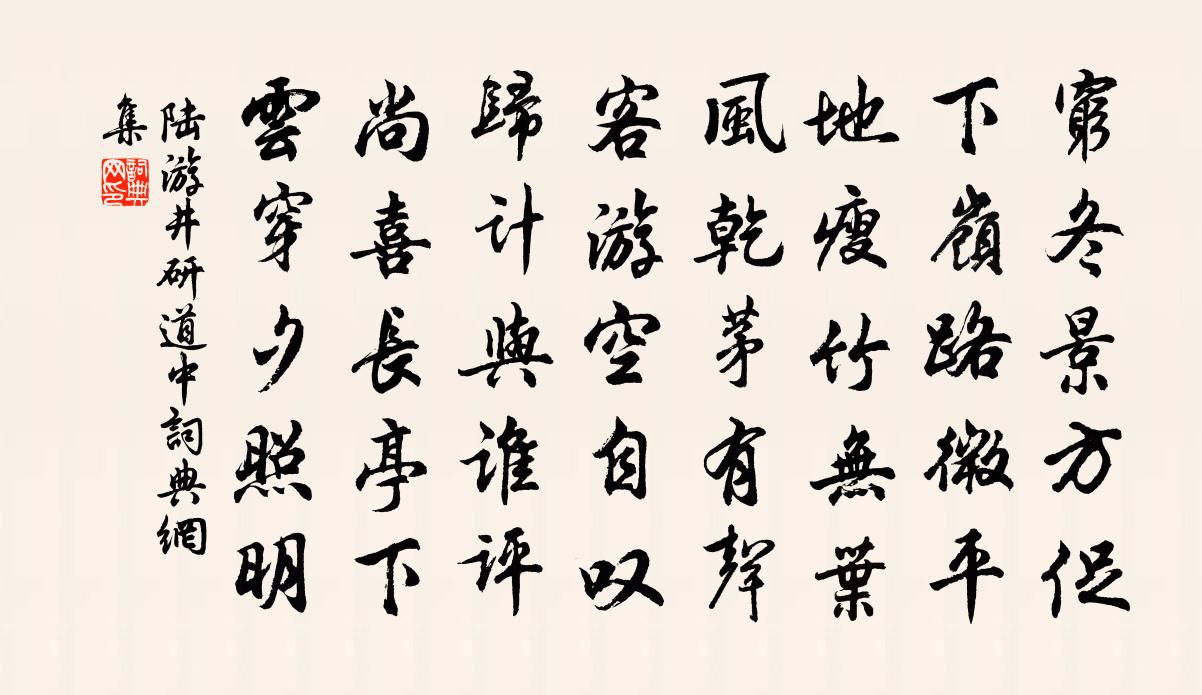 窮冬景方促
下嶺路微平
地瘦竹無葉
風乾茅有聲
客游空自叹
歸計與誰評
尚喜長亭下
雲穿夕照明
陆游井研道中詞典網
集
詞典網印